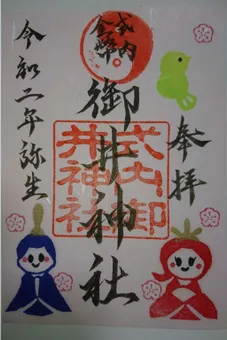 奉拝
式内
御井神社
式内御
井神社
令和二年弥生